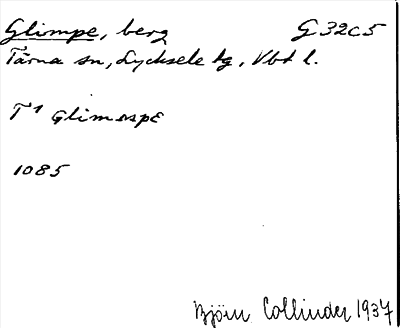 Glimpe, berg G 32c5
Tärna sn, Lycksele tg, Vbt l.
T¹
1085
Björn Collinder 1937